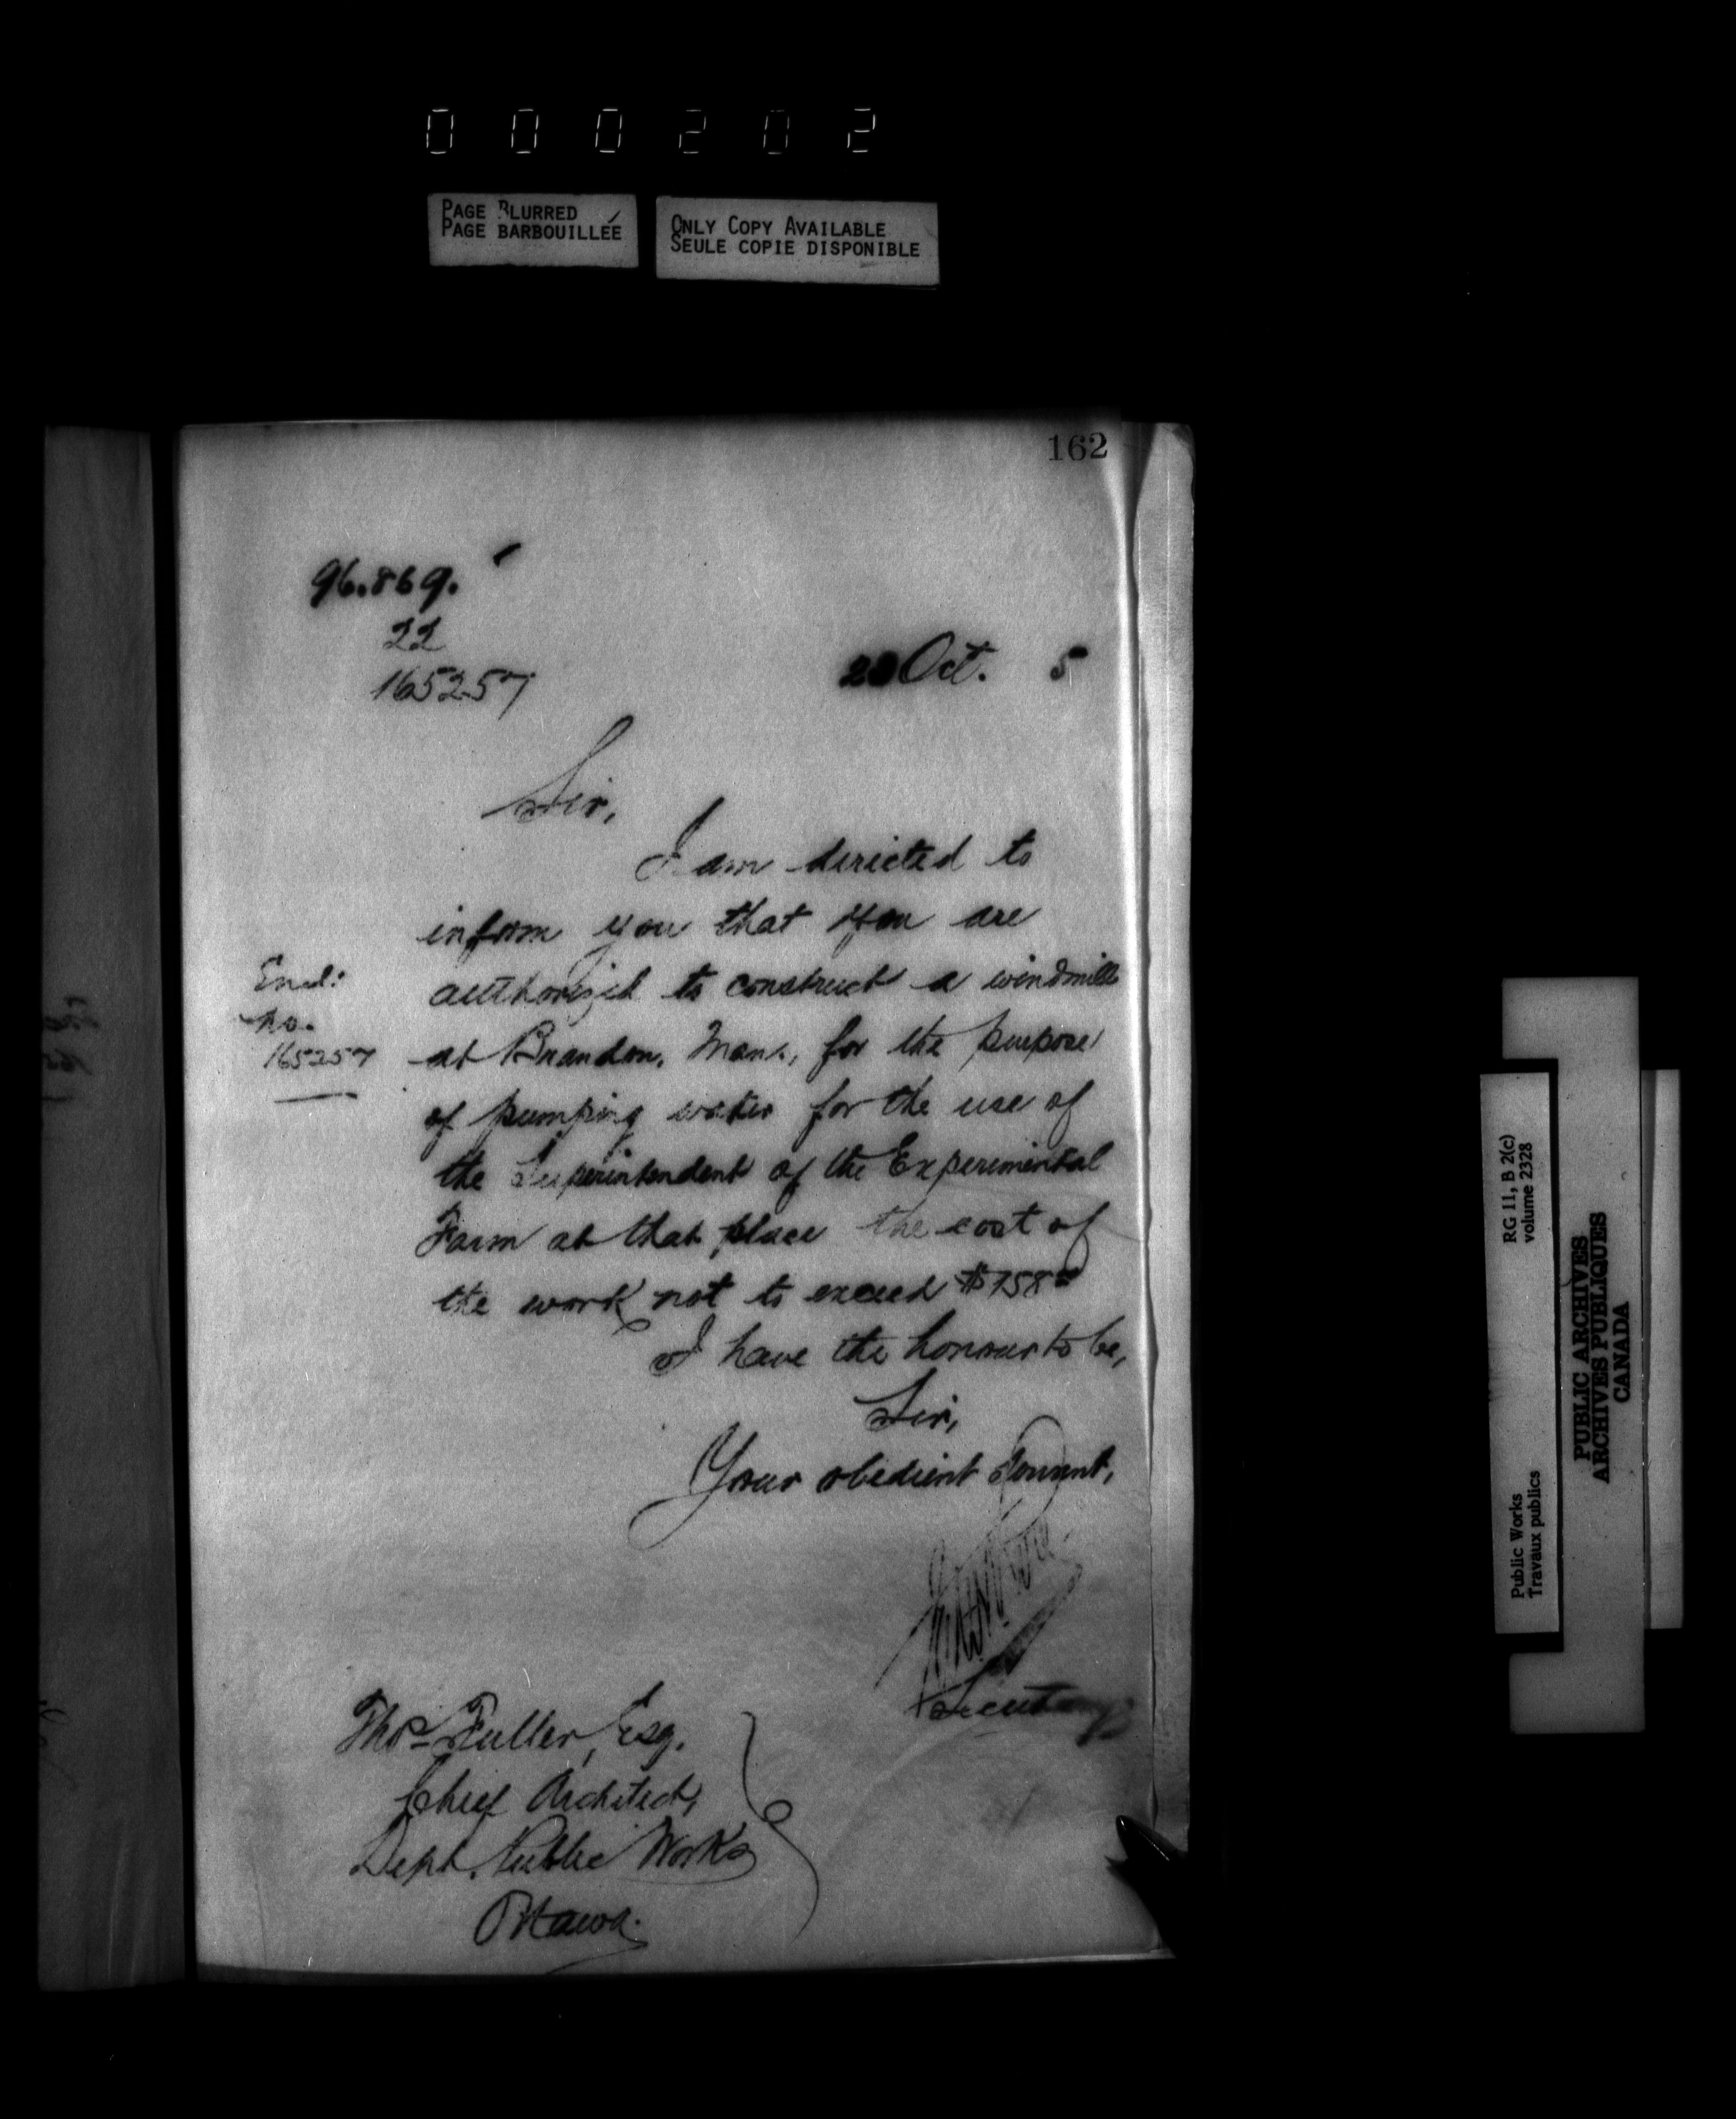 000202
PAGE BLURRED
PAGE BARBOUILLÉE
ONLY COPY AVAILABLE
SEULE COPIE DISPONIBLE
162
96.869.
22
165257
Oct. 5
Sir,
I am directed to
inform you that you are
authorized to construct a windmill
at Brandon, Man., for the purpose
of pumping water for the use of
the Superintendent of the Experimental
Farm at that place the cost of
the work not to exceed $758
I have the honour to be,
Sir,
Your obedient servant,
Secretary
Encl:
no.
165257
Thos Fuller, Esq.
Chief Architect,
Dept. Public Works
Ottawa.
RG 11, B 2(c)
volume 2328
Public Works
Travaux publics
PUBLIC ARCHIVES
ARCHIVES PUBLIQUES
CANADA